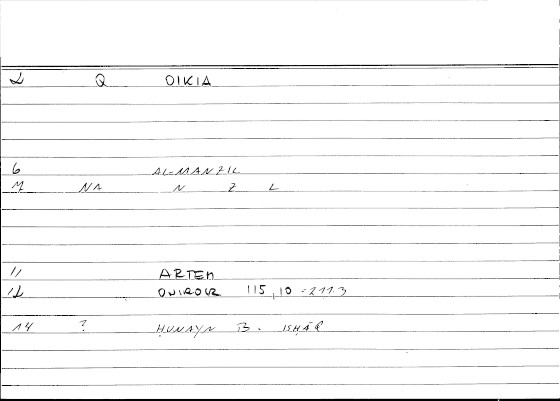 2 Q OIKIA
6 AL-MANZIL
M NA N Z L
11 ARTEM
12 ONIROCR 115,10 = 211.3
14 ? ḤUNAYN B. ISḤĀQ